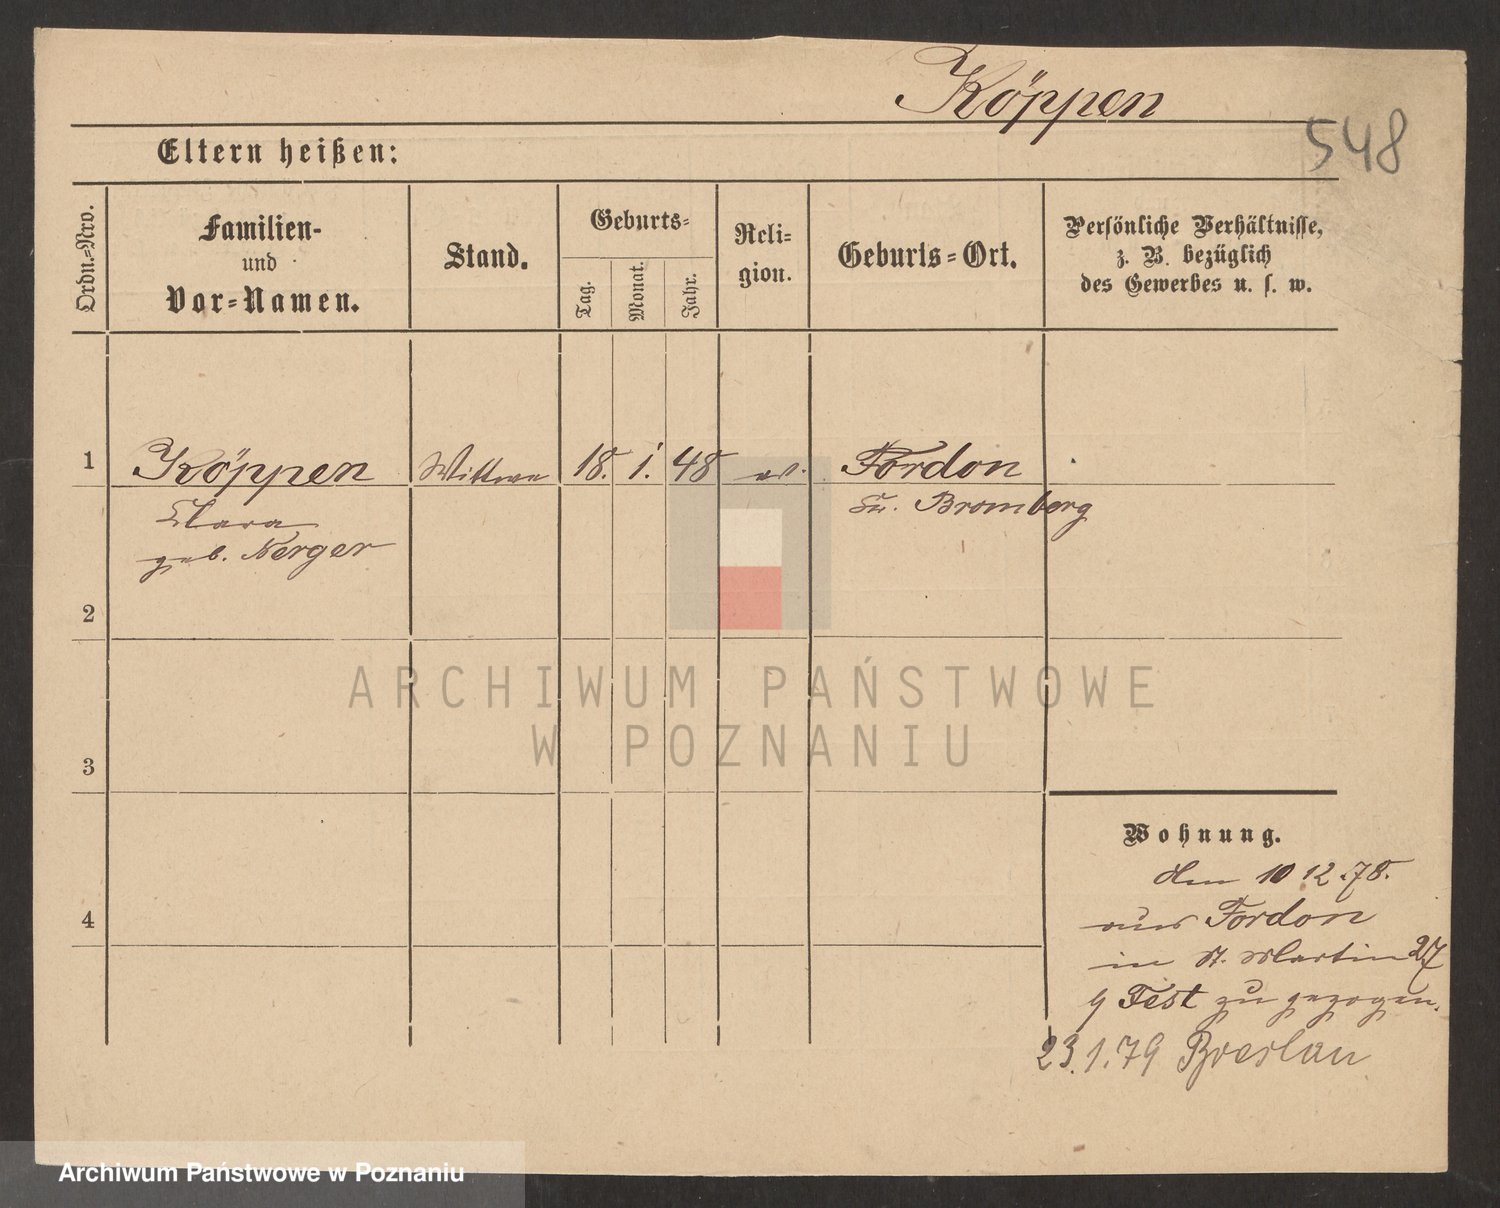 Köppen
548
Eltern heißen:
Ordn.-Nro.
Familien-
und
Vor-Namen.
Stand.
Geburts-
Tag.
Monat.
Jahr.
Reli-
gion.
Geburts-Ort.
Persönliche Verhältnisse,
z. B. bezüglich
des Gewerbes u. s. w.
1 Köppen Wittwe 18. 1. 48 ev. Fordon
Clara Kr. Bromberg
geb. Nerger
2
3
4
Wohnung.
den 10 12.78.
aus Fordon
in St. Martin 27
Fest zu gezogen.
23.1.79 Breslau
ARCHIWUM PAŃSTWOWE
W POZNANIU
Archiwum Państwowe w Poznaniu